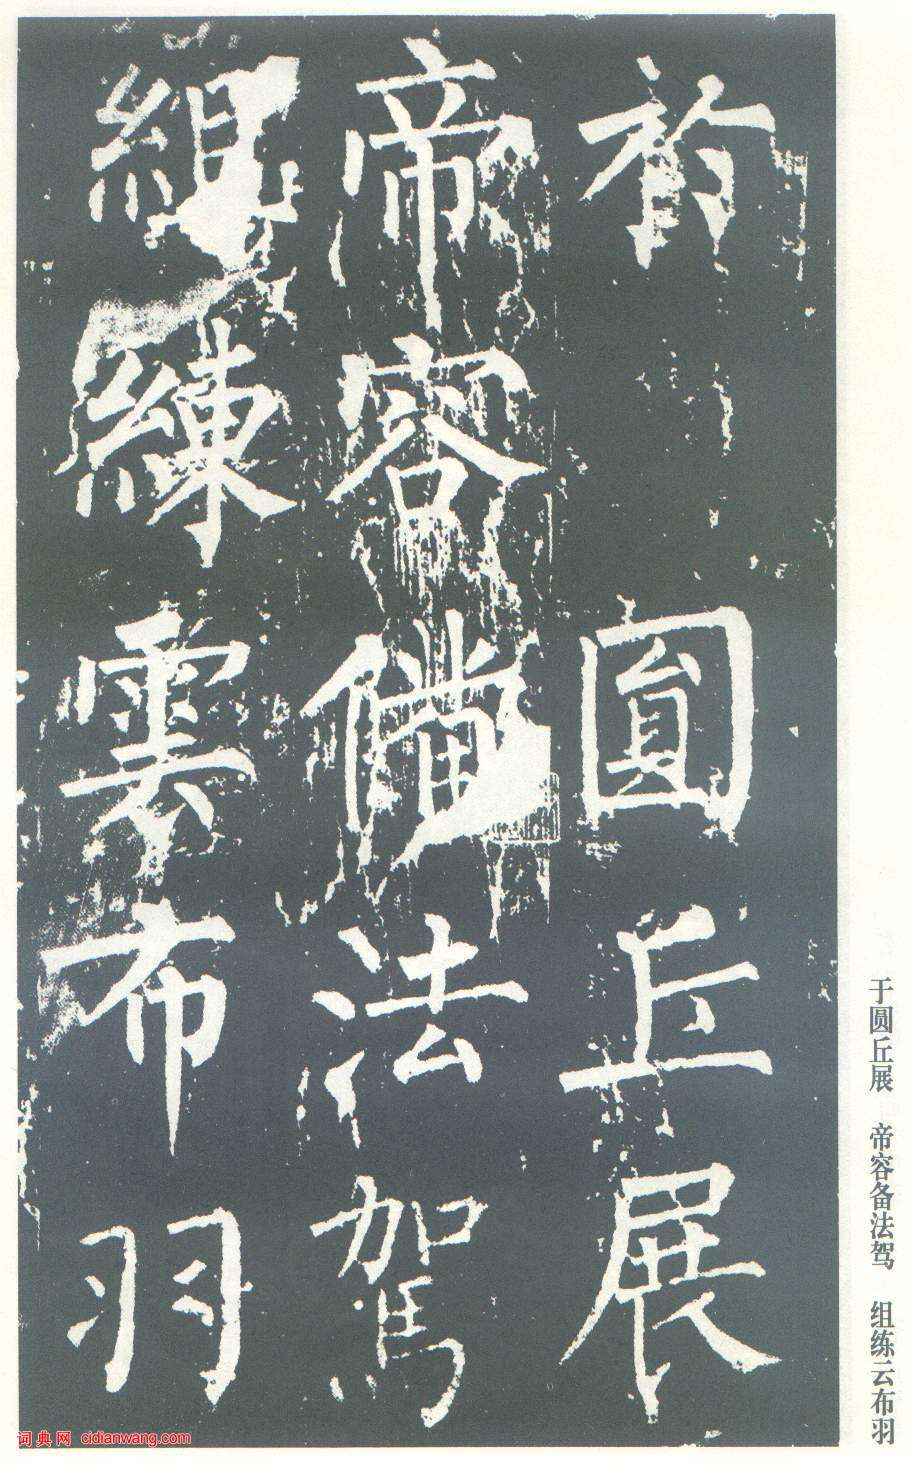 於圓丘展
帝容俻法駕
組練雲布羽
于圆丘展 帝容备法驾 组练云布羽
词典网 cidianwang.com